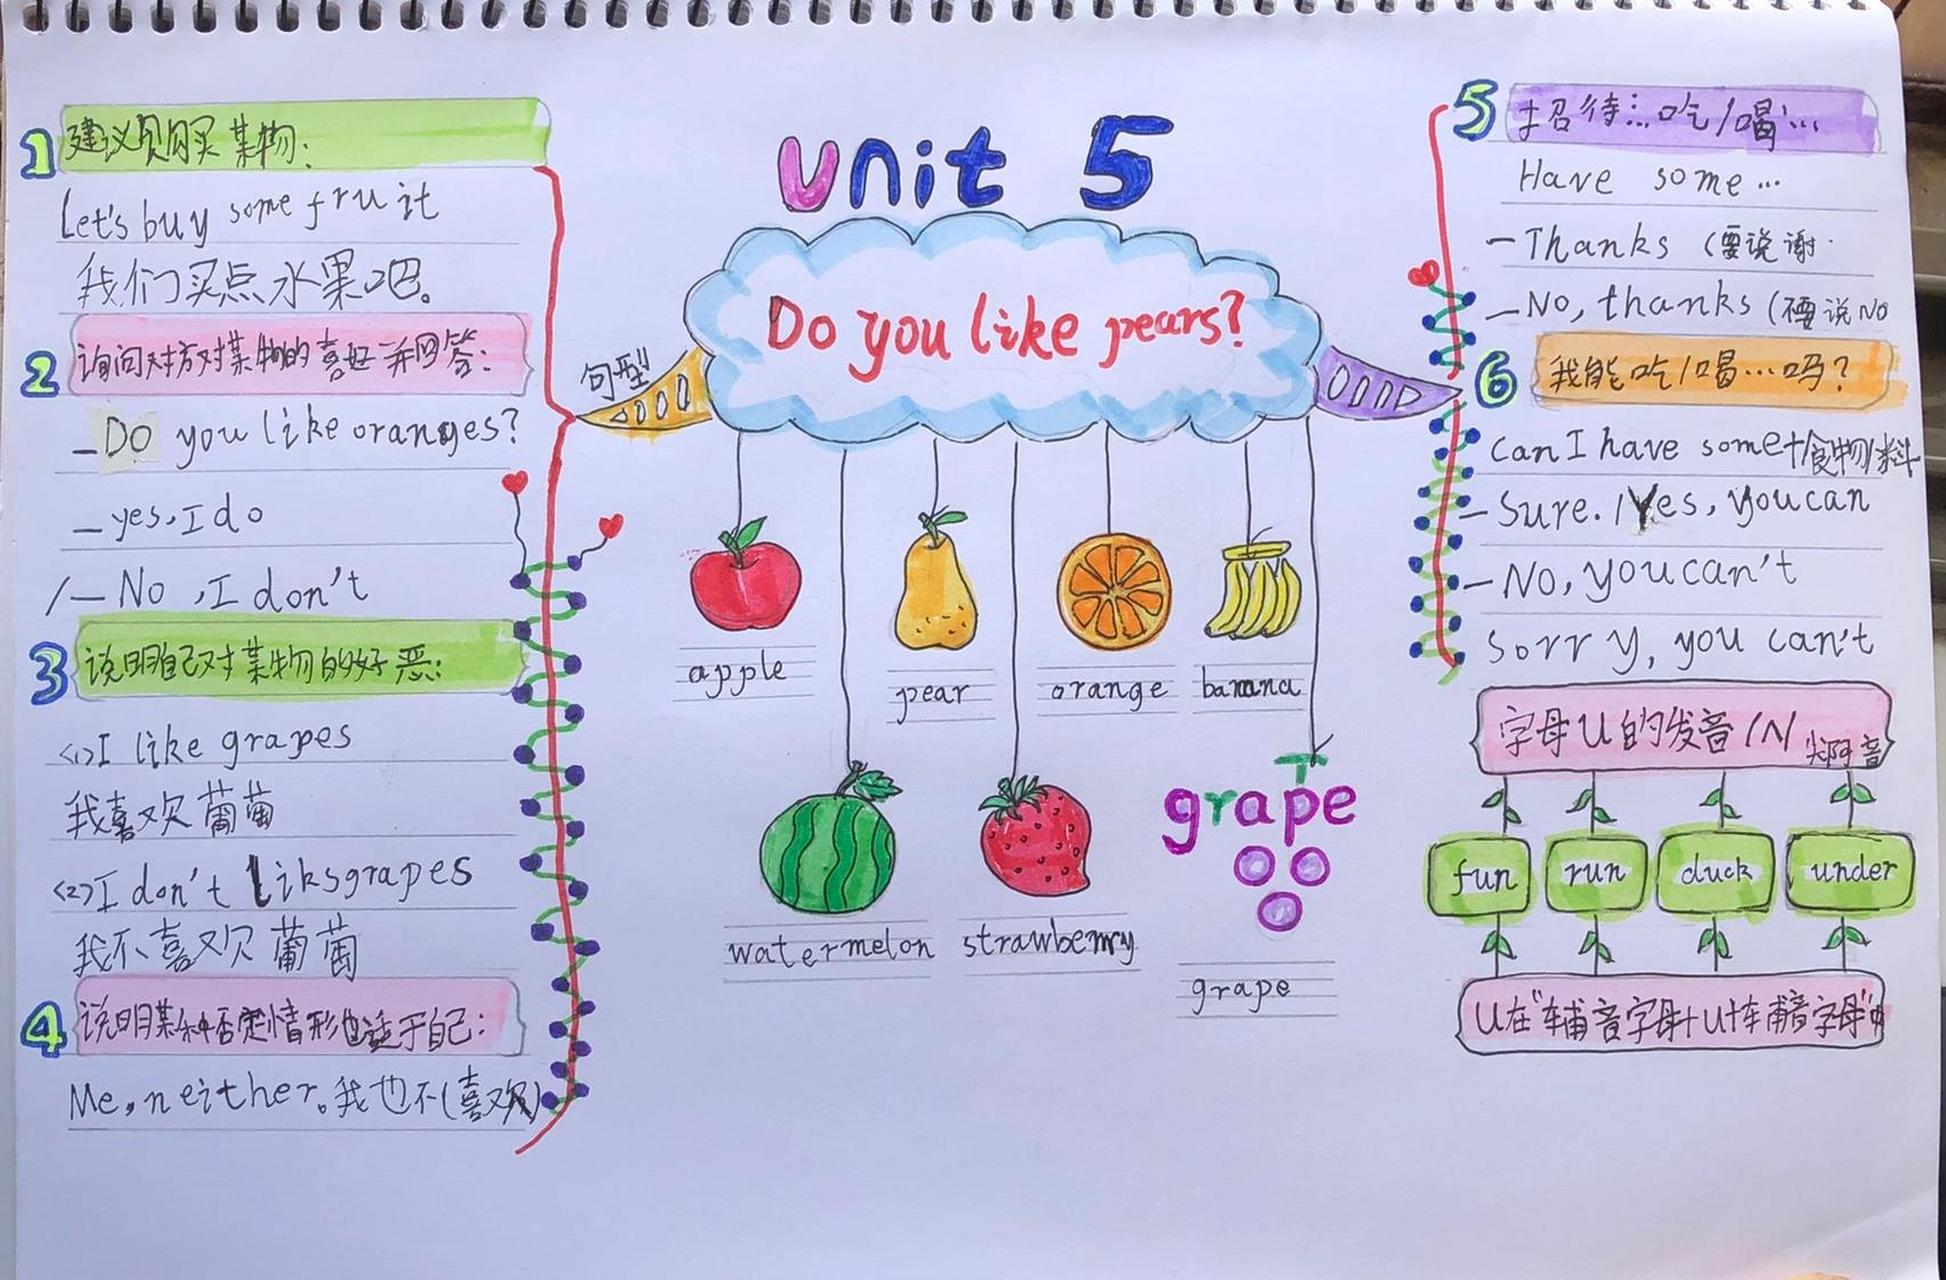 Unit 5
Do you like pears?
句型
1 建议购买某物:
Let's buy some fruit
我们买点水果吧。
2 询问对方对某物的喜好并回答:
-Do you like oranges?
-yes, I do
/-No, I don't
3 说明自己对某物的好恶:
<1>I like grapes
我喜欢葡萄
<2>I don't liks grapes
我不喜欢葡萄
4 说明某种否定情形也适于自己:
Me, neither。我也不(喜欢)
apple
pear
orange
banana
watermelon
strawberry
grape
grape
5 招待…吃/喝…
Have some…
-Thanks (要说谢
-No, thanks (不要说No
6 我能吃/喝…吗?
can I have some+食物/料
-Sure. /Yes, you can
-No, you can't
Sorry, you can't
字母U的发音/ʌ/
fun run duck under
U在"辅音字母+U+辅音字母"中